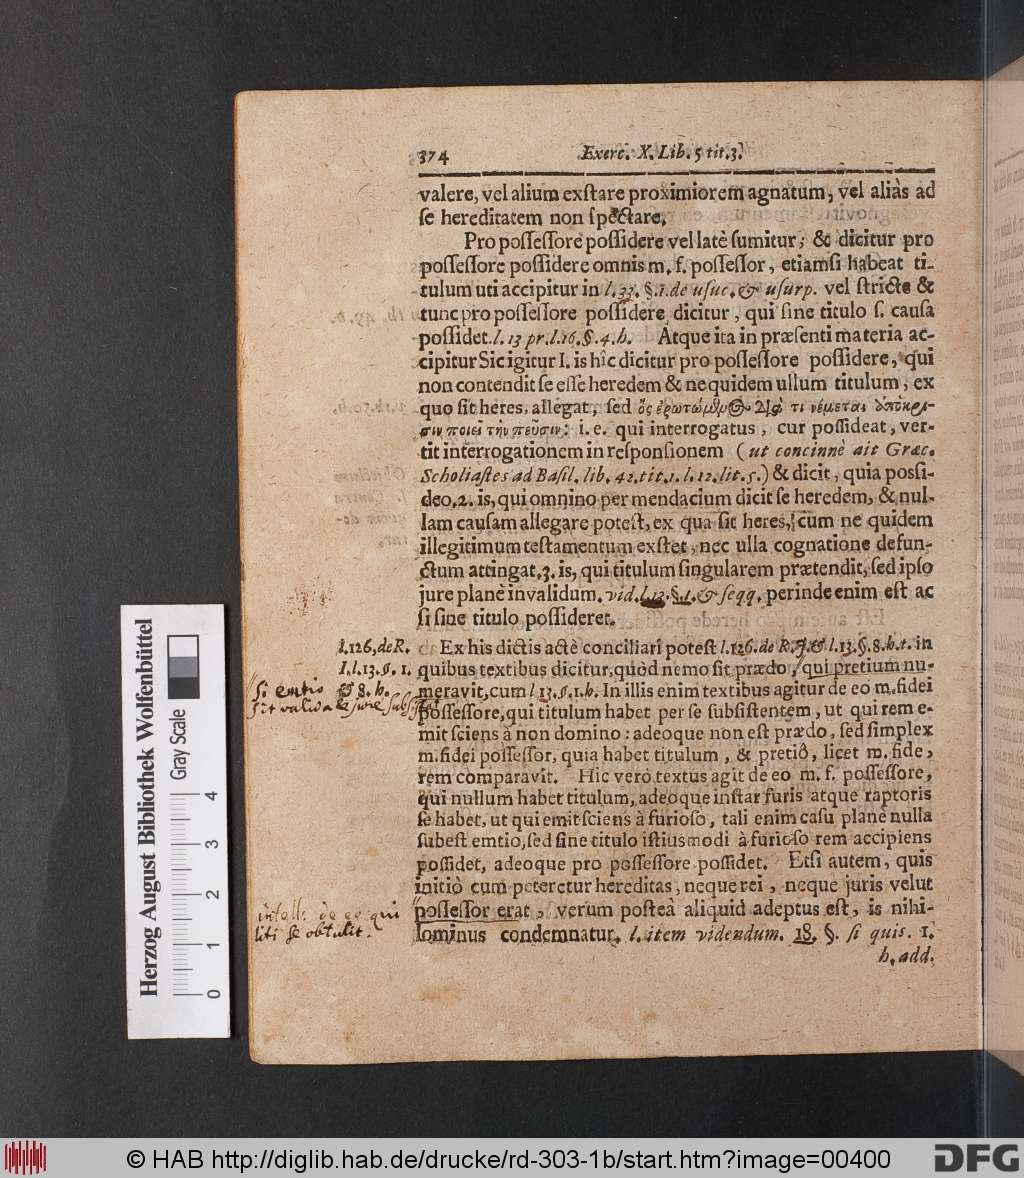 374 Exerc. X. Lib. 5 tit. 3.
valere, vel alium exſtare proximiorem agnatum, vel aliàs ad
ſe hereditatem non ſpectare.
Pro poſſeſſore poſſidere vel latè ſumitur; & dicitur pro
poſſeſſore poſſidere omnis m. f. poſſeſſor, etiamſi habeat ti-
tulum uti accipitur in l. 33. §. 1. de uſuc. & uſurp. vel ſtricte &
tunc pro poſſeſſore poſſidere dicitur, qui ſine titulo ſ. cauſa
poſſidet. l. 13 pr. l. 16. §. 4. h. Atque ita in præſenti materia ac-
cipitur Sic igitur I. is hîc dicitur pro poſſeſſore poſſidere, qui
non contendit ſe eſſe heredem & ne quidem ullum titulum, ex
quo ſit heres, allegat, ſed ὃς ἐρωτώμενος διὰ τι νέμεται ἀπόκρι-
σιν ποιεῖ τὴν πεῦσιν: i. e. qui interrogatus, cur poſſideat, ver-
tit interrogationem in reſponſionem (ut concinnè ait Græc.
Scholiaſtes ad Baſil. lib. 42. tit. 1. l. 12. lit. 5.) & dicit, quia poſſi-
deo. 2. is, qui omnino per mendacium dicit ſe heredem, & nul-
lam cauſam allegare poteſt, ex qua ſit heres, cum ne quidem
illegitimum teſtamentum exſtet, nec ulla cognatione defun-
ctum attingat. 3. is, qui titulum ſingularem prætendit, ſed ipſo
jure planè invalidum. vid. l. 13. §. 1. & ſeqq. perinde enim eſt ac
ſi ſine titulo poſſideret.
l. 126, de R.
I. l. 13. §. 1.
& 8. h.
ſi emtio
ſit valida de jure
Ex his dictis actè conciliari poteſt l. 126. de R. J. & l. 13. §. 8. h. t. in
quibus textibus dicitur, quòd nemo ſit prædo, qui pretium nu-
meravit, cum l 13. §. 1. h. In illis enim textibus agitur de eo m. fidei
poſſeſſore, qui titulum habet per ſe ſubſiſtentem, ut qui rem e-
mit ſciens à non domino: adeoque non eſt prædo, ſed ſimplex
m. fidei poſſeſſor, quia habet titulum, & pretiô, licet m. fide,
rem comparavit. Hic verò textus agit de eo m. f. poſſeſſore,
qui nullum habet titulum, adeoque inſtar furis atque raptoris
ſe habet, ut qui emit ſciens à furioſo, tali enim caſu planè nulla
ſubeſt emtio, ſed ſine titulo iſtiusmodi à furioſo rem accipiens
poſſidet, adeoque pro poſſeſſore poſſidet. Etſi autem, quis
initiò cum peteretur hereditas, neque rei, neque juris velut
poſſeſſor erat, verum poſteà aliquid adeptus eſt, is nihi-
lominus condemnatur. l. item videndum. 18. §. ſi quis. 1.
h. add.
intell. de eo qui
liti ſe obtulit.
Herzog August Bibliothek Wolfenbüttel
Gray Scale
0 1 2 3 4
© HAB http://diglib.hab.de/drucke/rd-303-1b/start.htm?image=00400
DFG